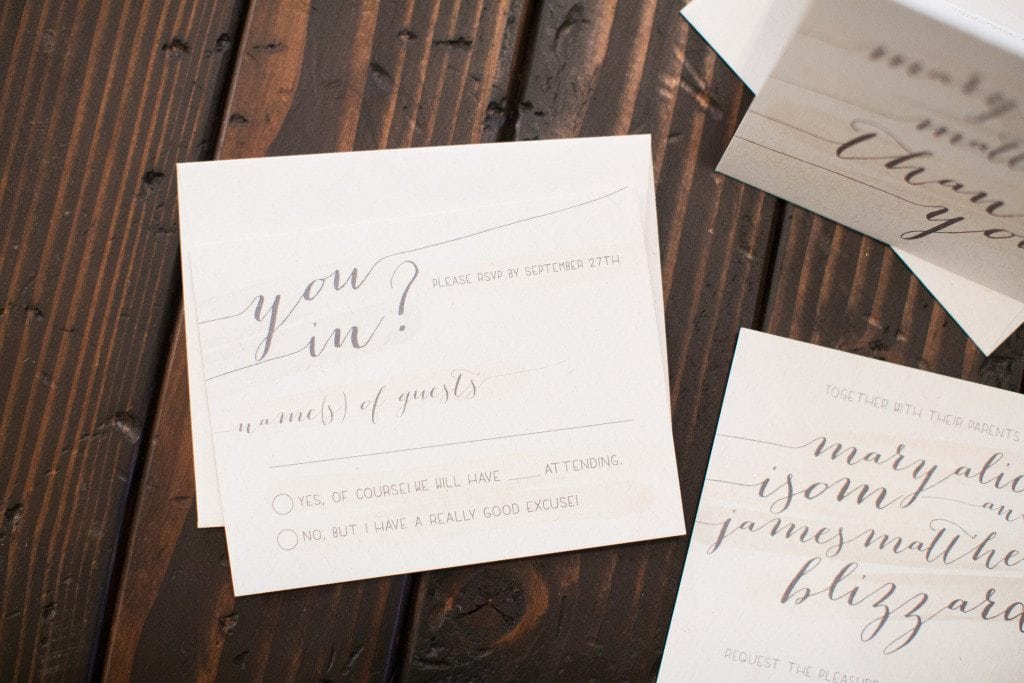 you
in?
PLEASE RSVP BY SEPTEMBER 27TH
name(s) of guests
YES, OF COURSE! WE WILL HAVE ____ ATTENDING.
NO, BUT I HAVE A REALLY GOOD EXCUSE!
mary
matt
than
you
TOGETHER WITH THEIR PARENTS
mary alic
isom an
james matthe
blizzard
REQUEST THE PLEASURE